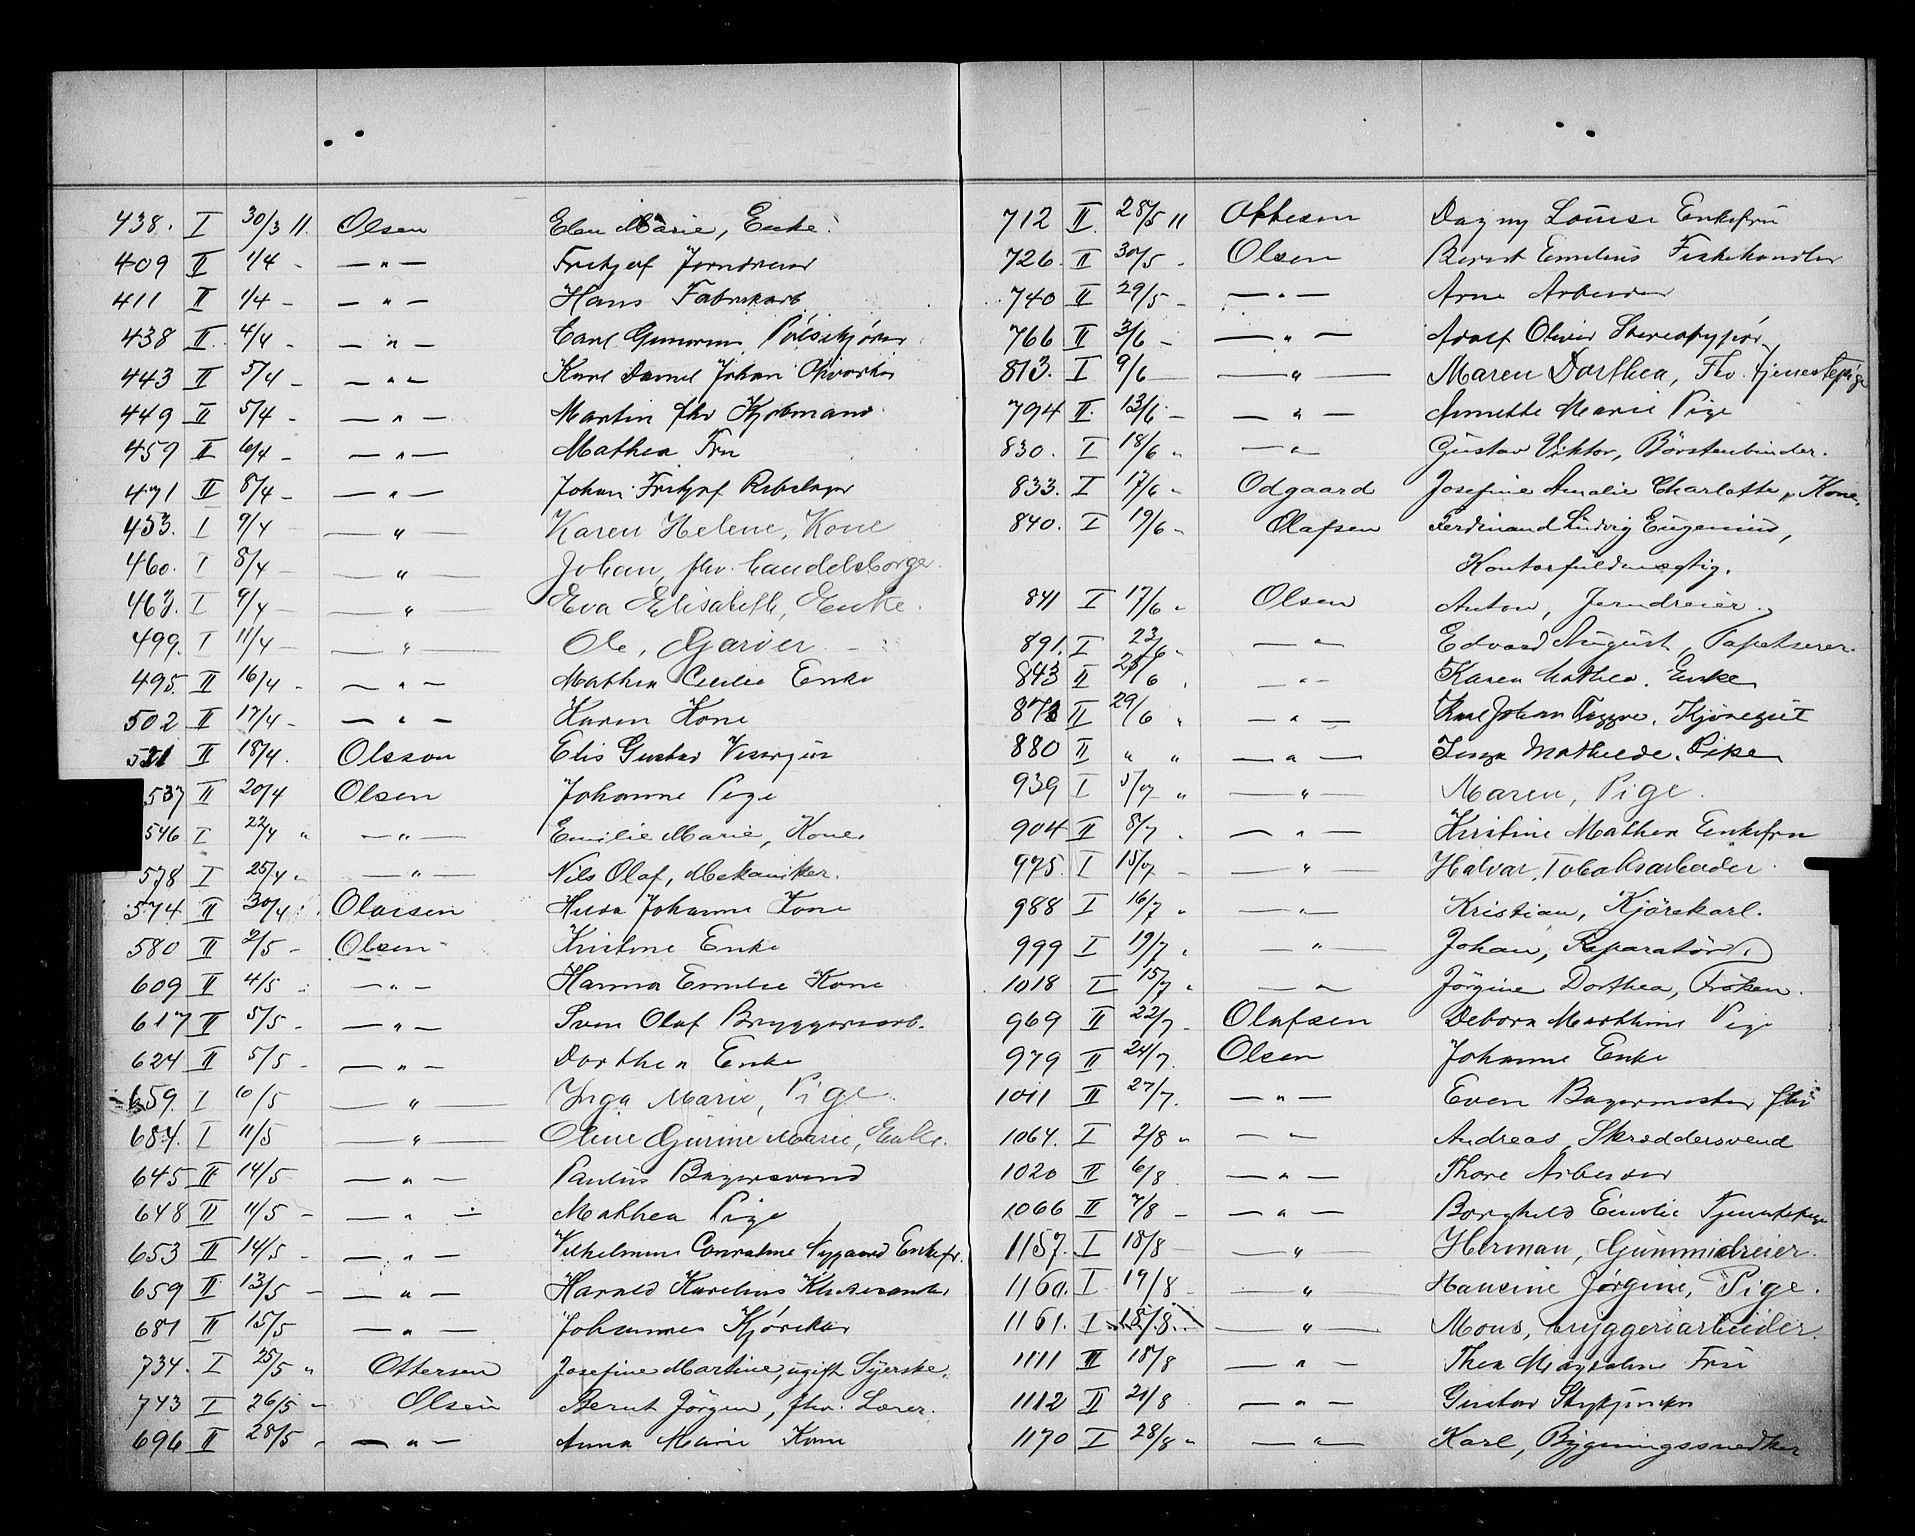 438. I 30/3 11. Olsen Elen Marie, Enke.
409 II 1/4 - — " — Fritjof Jerndreier
411 II 1/4 - — " — Hans Fabrikarb
438 II. 4/4 - — " — Carl Gunerius Pølsekjører
443 II 5/4 - — " — Karl Daniel Johan
449 II 5/4 - — " — Martin fhv Kjøbmand
459 II 6/4 - — " — Mathea Fru
471 II 8/4 - — " — Johan Fritjof Rebslager
453. I 9/4 — " — Karen Helene, Kone
460. I 8/4 — " — Johan, fhv. handelsborger.
463. I 9/4 — " — Eva Elisabeth, Enke.
499. I 11/4 — " — Ole, Garver
495. II 16/4 - — " — Mathea Cecilie Enke
502 II 17/4 - — " — Karen Kone
521 II 18/4. Olsson Elis Gustav Visergut
537 II 20/4 Olsen Johanne Pige
546 I 22/4 " — " — Emilie Marie, Kone.
578 I 25/4 " — " — Nils Olaf, Mekaniker.
574 II 30/4 Olaisen Hilda Johanne Kone
580 II 2/5 - Olsen Kristine Enke
609 II 4/5 — " — Hanna Emilie Kone
617 II 5/5 - — " — Sven Olaf Bryggeriarb.
624 II 5/5 - — " — Dorthea Enke
659. I 10/5 — " — Inga Marie, Pige.
684. I 11/5 — " — Oline Gurine Marie, Enke.
645 II 14/5 — " — Paulus Bagersvend
648 II 11/5 - — " — Mathea Pige
653 II 14/5 - — " — Vilhelmine Conradine Nygaard Enkefr.
659 II 13/5 - — " — Harald Karelius
681 II 15/5 — " — Johannes Kjørekar
734. I 25/5 " Ottersen Josefine Martine, ugift Syerske.
743 I 26/5 - Olsen Bernt Jörgen, fhv. Lærer.
696 II 28/5 - — " — Anna Marie Kone
712 II. 28/5 11 Ottesen Dagny Louise Enkefru
726. II 30/5 - Olsen Bernt Emelius Fiskehandler
740 II 29/5 - — " — Arne Arbeider
766 II 3/6 - — " — Adolf Oliver Stereotypør
813. I 9/6 — " — Maren Dorthea, Fhv. tjenestepige
794 II. 13/6 - — " — Annette Marie Pige
830. I 18/6 " — " — Gustav Viktor, Börstenbinder.
833. I 17/6 " Odgaard Josefine Amalie Charlotte, Kone.
840. I 19/6 - Olafsen Ferdinand Ludvig Eugenius,
Kontorfuldmægtig.
841 I 17/6 " Olsen Anton, Jerndreier.
891. I 23/6 " — " — Edvard August, Tapetserer.
843 II 25/6 — " — Karen Mathea. Enke
873 II 29/6 " — " — Karl Johan Trygve. Kjøregut
880 II " " — " — Inga Mathilde. Pike
939 I 5/7 " — " — Maren, Pige.
904 II 8/7 — " — Kristine Mathea Enkefru
975. I 15/7 - — " — Halvar, Tobaksarbeider.
988 I 16/7 " — " — Kristian, Kjörekarl.
999 I 19/7 " — " — Johan, Reparatör.
1018 I 15/7 " — " — Jörgine Dorthea, Fröken.
969 II 22/7 - Olafsen Debora Marthine Pige
979 II 24/7. Olsen Johanne Enke
1011 II 27/7. — " — Even Bagermester fhv
1064. I 2/8 " — " — Andreas, Skræddersvend
1020 II 6/8 — " — Thore Arbeider
1066 II 7/8 - — " — Borghild Emilie Tjenestepige
1157. I 18/8 — " — Herman, Gummidreier.
1160. I 19/8 — " — Hansine Jørgine, Pige.
1161. I 18/8. — " — Mons, bryggeriarbeider.
1111 II 18/8 — " — Thea Magdaline Fru
1112 II 21/8 — " — Gustav
1170 I 28/8 " — " — Karl, Bygningssnedker